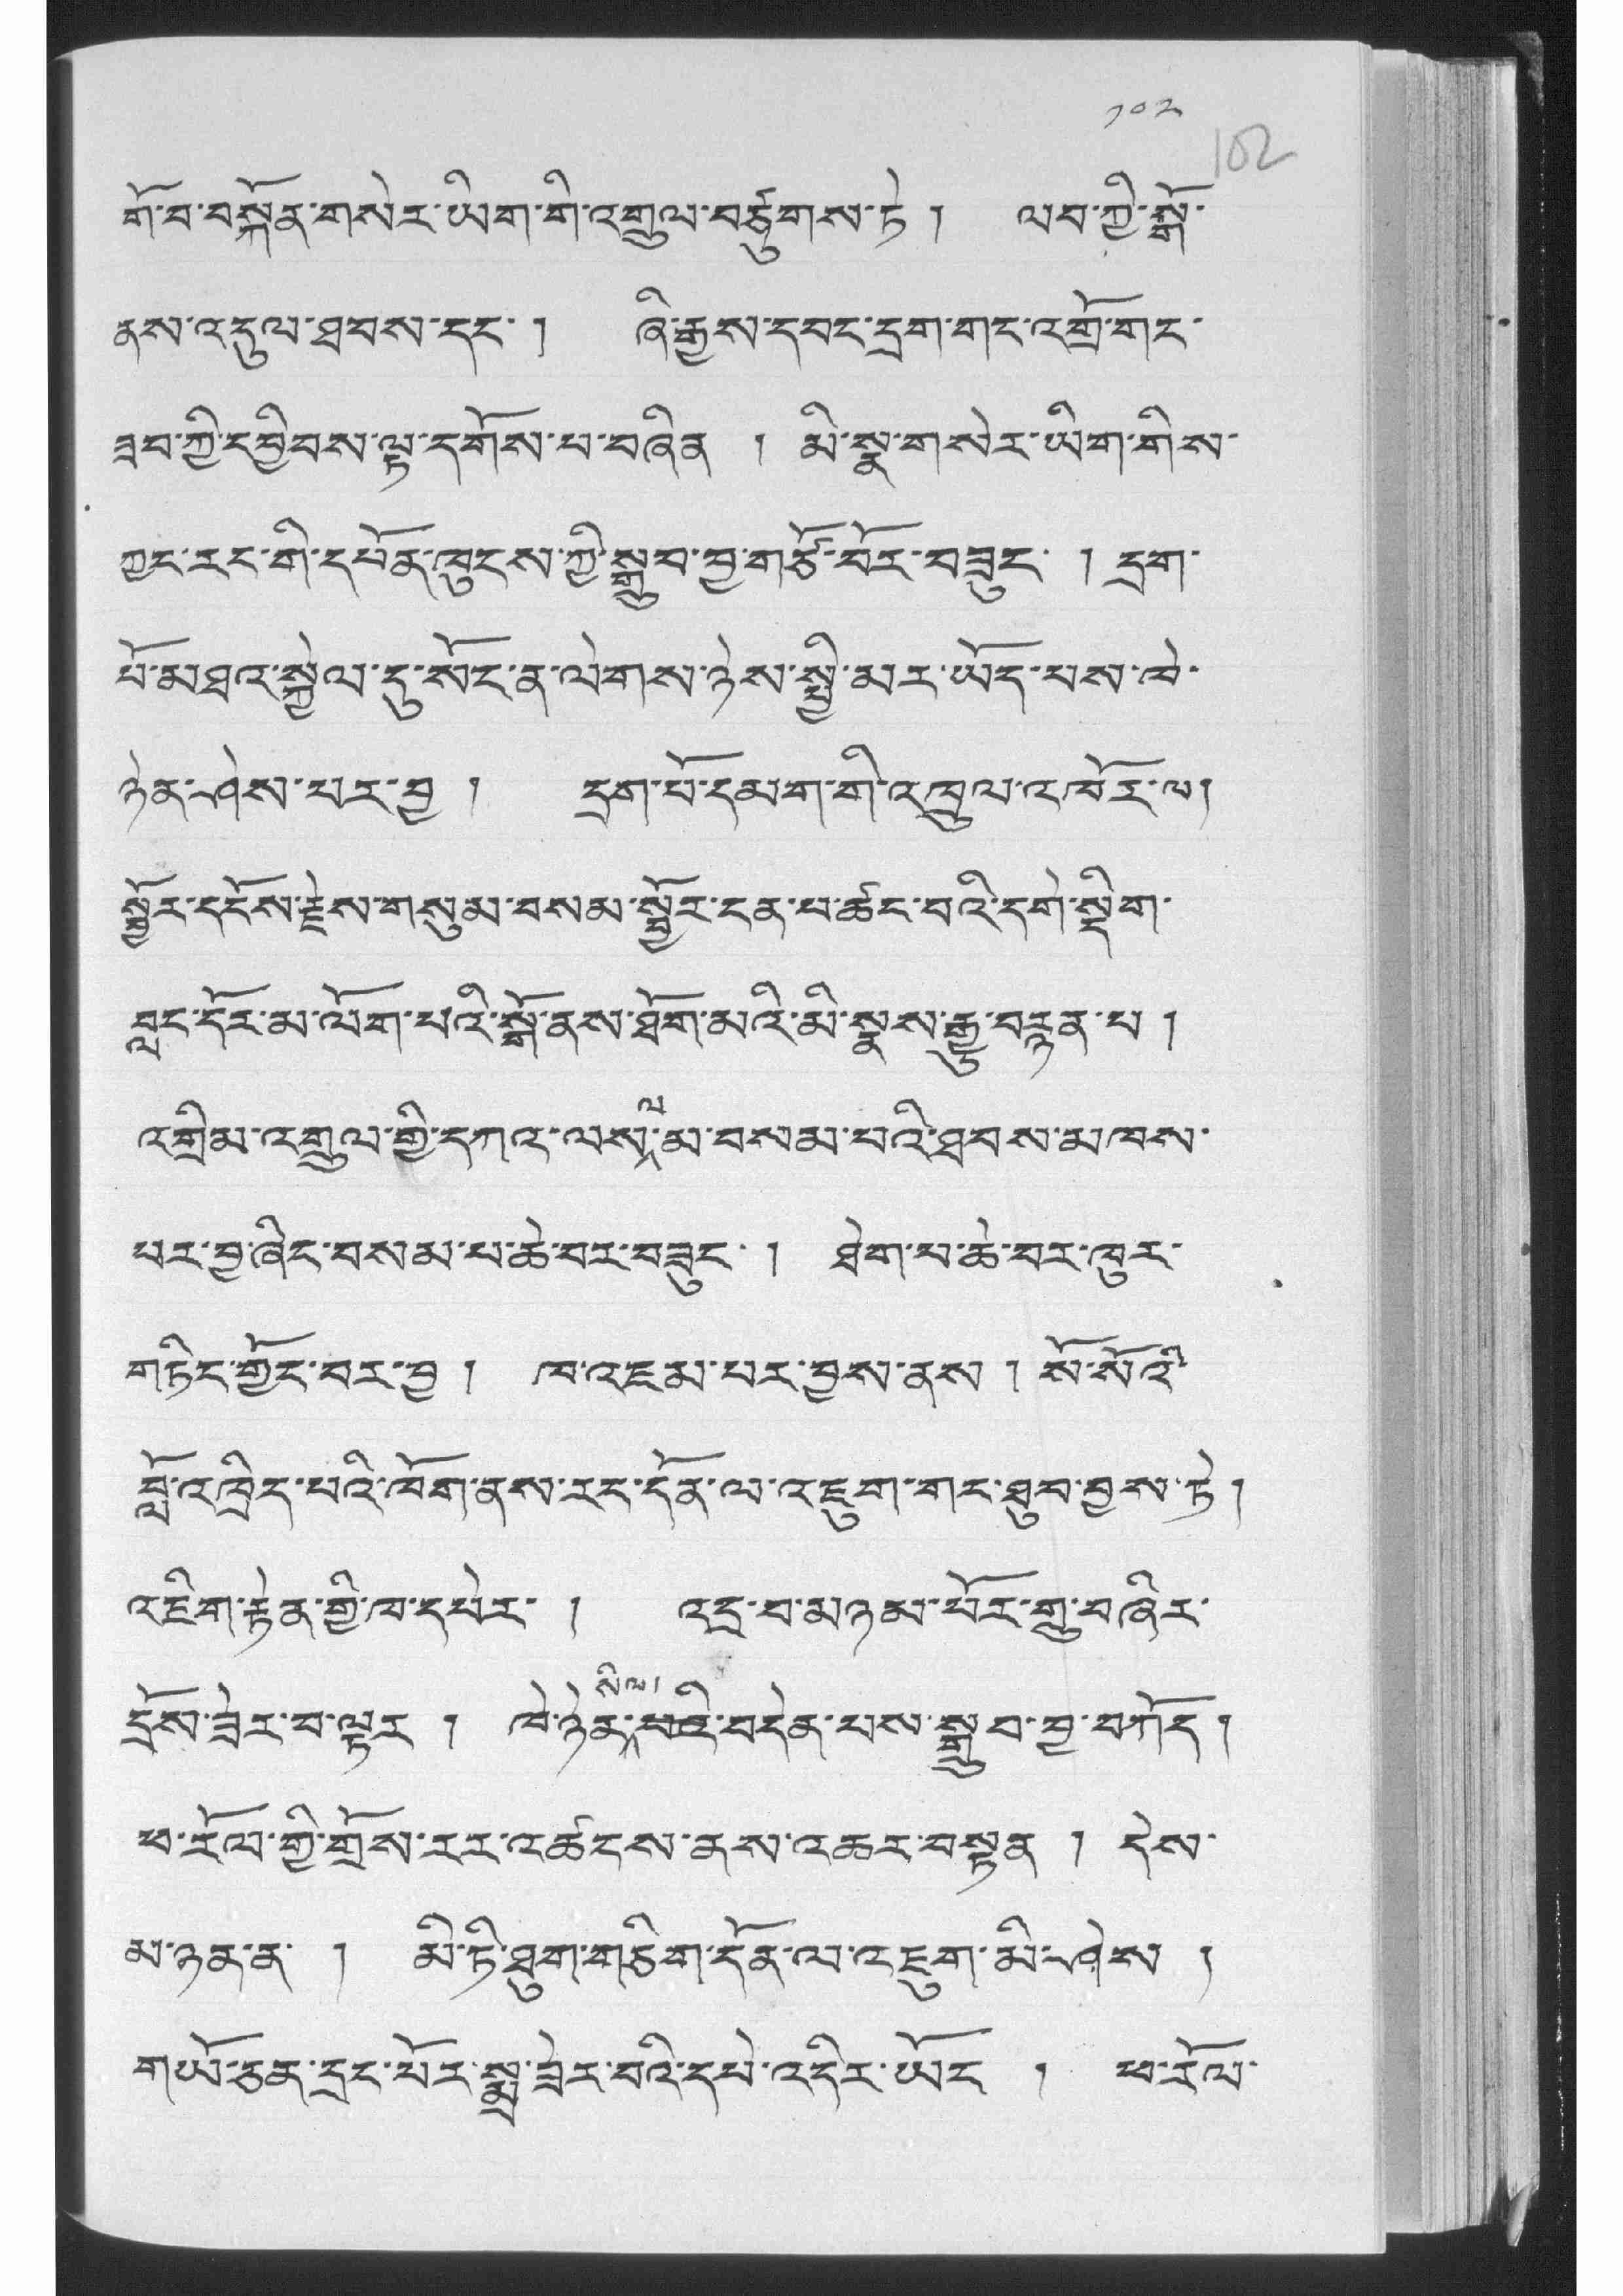 ༡༠༢
102
གོ་བ་བསྐོན་གསེར་ཡིག་གི་འགྲུལ་བརྩུགས་ཏེ། ལབ་ཀྱི་སྒོ་
ནས་འདུལ་ཐབས་དང་། ཞི་རྒྱས་དབང་དྲག་གང་འགྲོ་གང་
ཟབ་ཀྱི་དབྱིབས་ལྟ་དགོས་པ་བཞིན། མི་སྣ་གསེར་ཡིག་གིས་
ཀྱང་རང་གི་དཔོན་ཁུངས་ཀྱི་སྒྲུབ་བྱ་གཙོ་བོར་བཟུང་། དྲག་
པོ་མཐའ་སྐྱེལ་དུ་སོང་ན་ལེགས་ཉེས་སྤྱི་མར་ཡོད་པས་ཁེ་
ཉེན་ཤེས་པར་བྱ། དྲག་པོ་དམག་གི་འཁྲུལ་འཁོར་ལ།
སྦྱོར་དངོས་རྗེས་གསུམ་བསམ་སྦྱོར་ངན་པ་ཚང་བའི་དགེ་སྡིག་
བླང་དོར་མ་ལོག་པའི་སྒོ་ནས་ཐོག་མའི་མི་སྣས་རྒྱུ་བརྟན་པ།
འགྲིམ་འགྲུལ་གྱི་དཀའ་ལས་ལ་མ་བསམ་པའི་ཐབས་མཁས་
པར་བྱ་ཞིང་བསམ་པ་ཆེ་བར་བཟུང་། ཐེག་པ་ཆེ་བར་ཁུར་
གཏིང་གྱོང་བར་བྱ། ཁ་འཇམ་པར་བྱས་ནས། སོ་སོའི་
བློ་འཁྲིད་པའི་ཁོག་ནས་རང་དོན་ལ་འཇུག་གང་ཐུབ་བྱས་ཏེ།
འཇིག་རྟེན་གྱི་ཁ་དཔེར་། འདྲ་བ་མཉམ་པོར་གླུ་བཞིར་
དྲོས་ཟེར་བ་ལྟར། ཁེ་ཉེན་སེལ་བའི་བདེན་པས་སྒྲུབ་བྱ་བཀོད།
ཕ་རོལ་གྱི་གྲོས་རར་འཚངས་ནས་འཆར་བསྟན། དེས་
མ་ཉན་ན་། མི་ཏི་ཐུག་གཅིག་དོན་ལ་འཇུག་མི་ཤེས།
གཡོ་ཅན་དྲང་པོར་སྨྲ་ཟེར་བའི་དཔེ་འདིར་ཡོང། ཕ་རོལ་